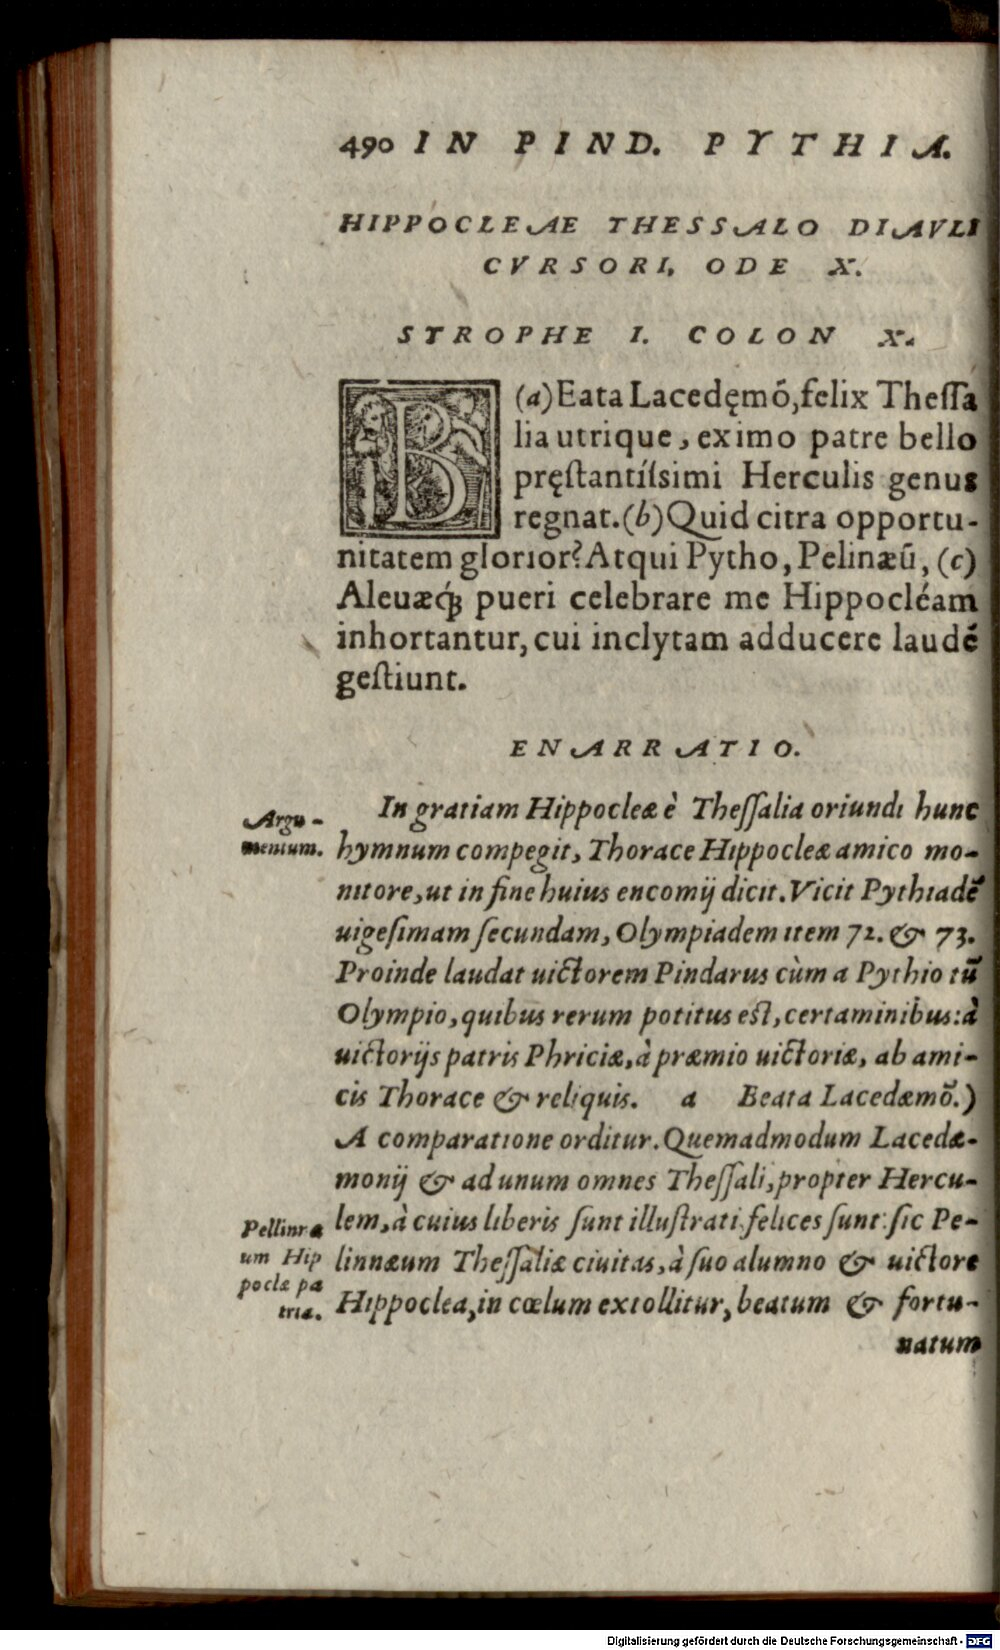 490 IN PIND. PYTHIA.
HIPPOCLEAE THESSALO DIAVLI
CVRSORI, ODE X.
STROPHE I. COLON X.
B(a)Eata Lacedęmō,felix Theſſa
lia utrique, eximo patre bello
pręſtantiſsimi Herculis genus
regnat.(b)Quid citra opportu-
nitatem glorior? Atqui Pytho, Pelinæū, (c)
Aleuæq́ꝫ pueri celebrare me Hippocléam
inhortantur, cui inclytam adducere laudē
geſtiunt.
ENARRATIO.
Argu-
mentum.
In gratiam Hippocleæ è Theſſalia oriundi hunc
hymnum compegit, Thorace Hippocleæ amico mo-
nitore, ut in fine huius encomij dicit. Vicit Pythiadē
uigeſimam ſecundam, Olympiadem item 72. & 73.
Proinde laudat uictorem Pindarus cùm a Pythio tū
Olympio, quibus rerum potitus eſt, certaminibus: à
uictorijs patris Phriciæ, à præmio uictoriæ, ab ami-
cis Thorace & reliquis. a Beata Lacedæmō.)
A comparatione orditur. Quemadmodum Lacedæ-
monij & ad unum omnes Theſſali, propter Hercu-
Pellinræ
um Hip
poclæ pa
tria.
lem, à cuius liberis ſunt illuſtrati, felices ſunt: ſic Pe-
linnæum Theſſaliæ ciuitas, à ſuo alumno & uictore
Hippoclea, in cœlum extollitur, beatum & fortu-
natum
Digitalisierung gefördert durch die Deutsche Forschungsgemeinschaft - DFG